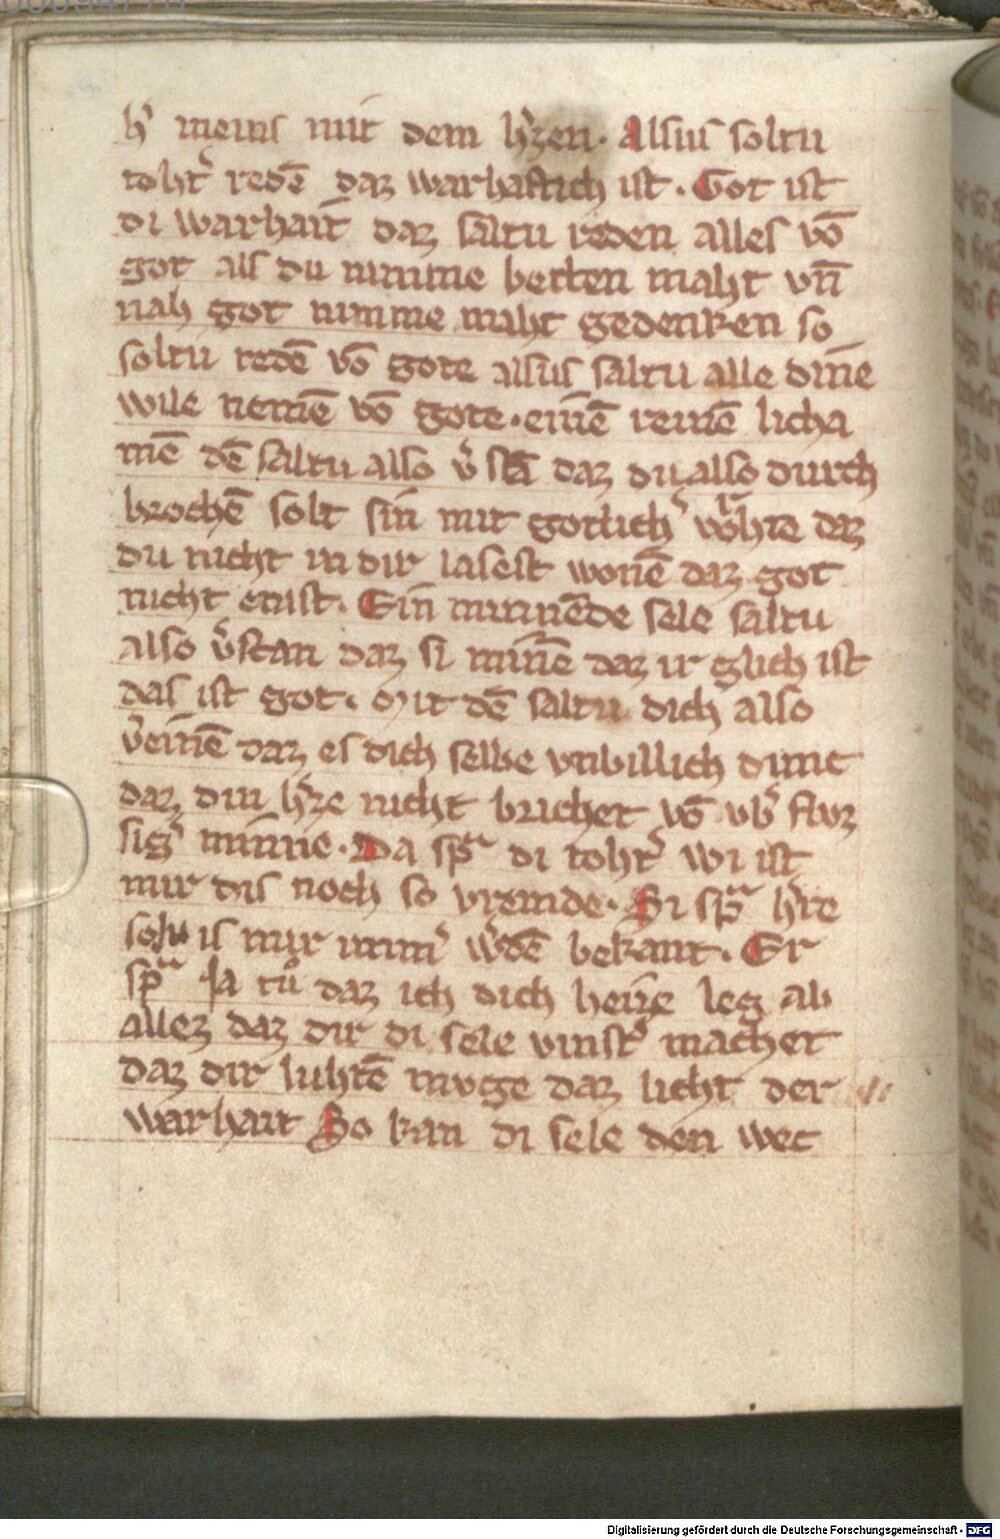 h' meins mit dem h'zen. Alsus soltu
toht' redē daz warhaftich ist. Got ist
di warhait daz saltu reden alles vō
got als du nimme betten maht vn̄
nah got nimme maht gedenken so
soltu redē vō gote alsus saltu alle dine
wile nemē vō gote. einē reinē licha
mē dē saltu also v'stā daz du also durch
brochē solt sin mit gotlich' vorhte daz
du nicht in dir lasest wonē daz got
nicht enist. Ein minnēde sele saltu
also v'stan daz si minē daz ir glich ist
das ist got. Mit dē saltu dich also
v'einē daz es dich selbe vnbillich dunc
daz din h'ze nicht brichet vō vb' flvz
sig' minne. Da spͣ di toht' wi ist
mir dis noch so vremde. Si spͣ h're
sol is mir imm' w'dē bekant. Er
spͣ Ja tů daz ich dich heize leg ab
allez daz dir di sele vinst' machet
daz dir luhtē mvge daz licht der
warhait So kan di sele den wec
Digitalisierung gefördert durch die Deutsche Forschungsgemeinschaft - DFG